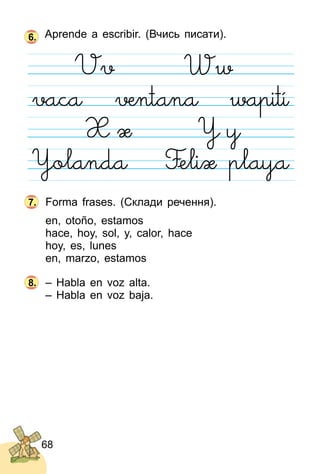 6. Aprende a escribir. (Вчись писати).
Vv Ww
vaca ventana wapití
X x Y y
Yolanda Felix playa
7. Forma frases. (Склади речення).
en, otoño, estamos
hace, hoy, sol, y, calor, hace
hoy, es, lunes
en, marzo, estamos
8. – Habla en voz alta.
– Habla en voz baja.
68